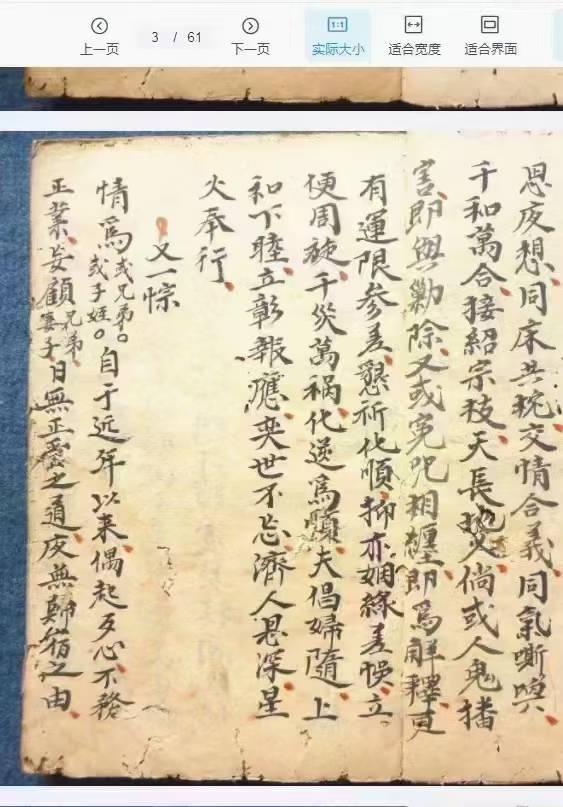 上一页
3 / 61
下一页
实际大小
适合宽度
适合界面
思夜想同床共枕交情合義同氣嘶噢
千和萬合接紹宗枝天長地久倘或人鬼播
害即與勦除又或冤咒相纏即為解釋更
有運限參差懇祈化順抑亦姻緣差悞立
便周旋千災萬禍化逆為順夫倡婦隨上
和下睦立彰報應奕世不忘濟人恩深星
火奉行
又一悰
情為或兄弟或子姪自于近年以来偶起歹心不務
正業妄顧兄弟妻子日無正愛之道夜無歸宿之由